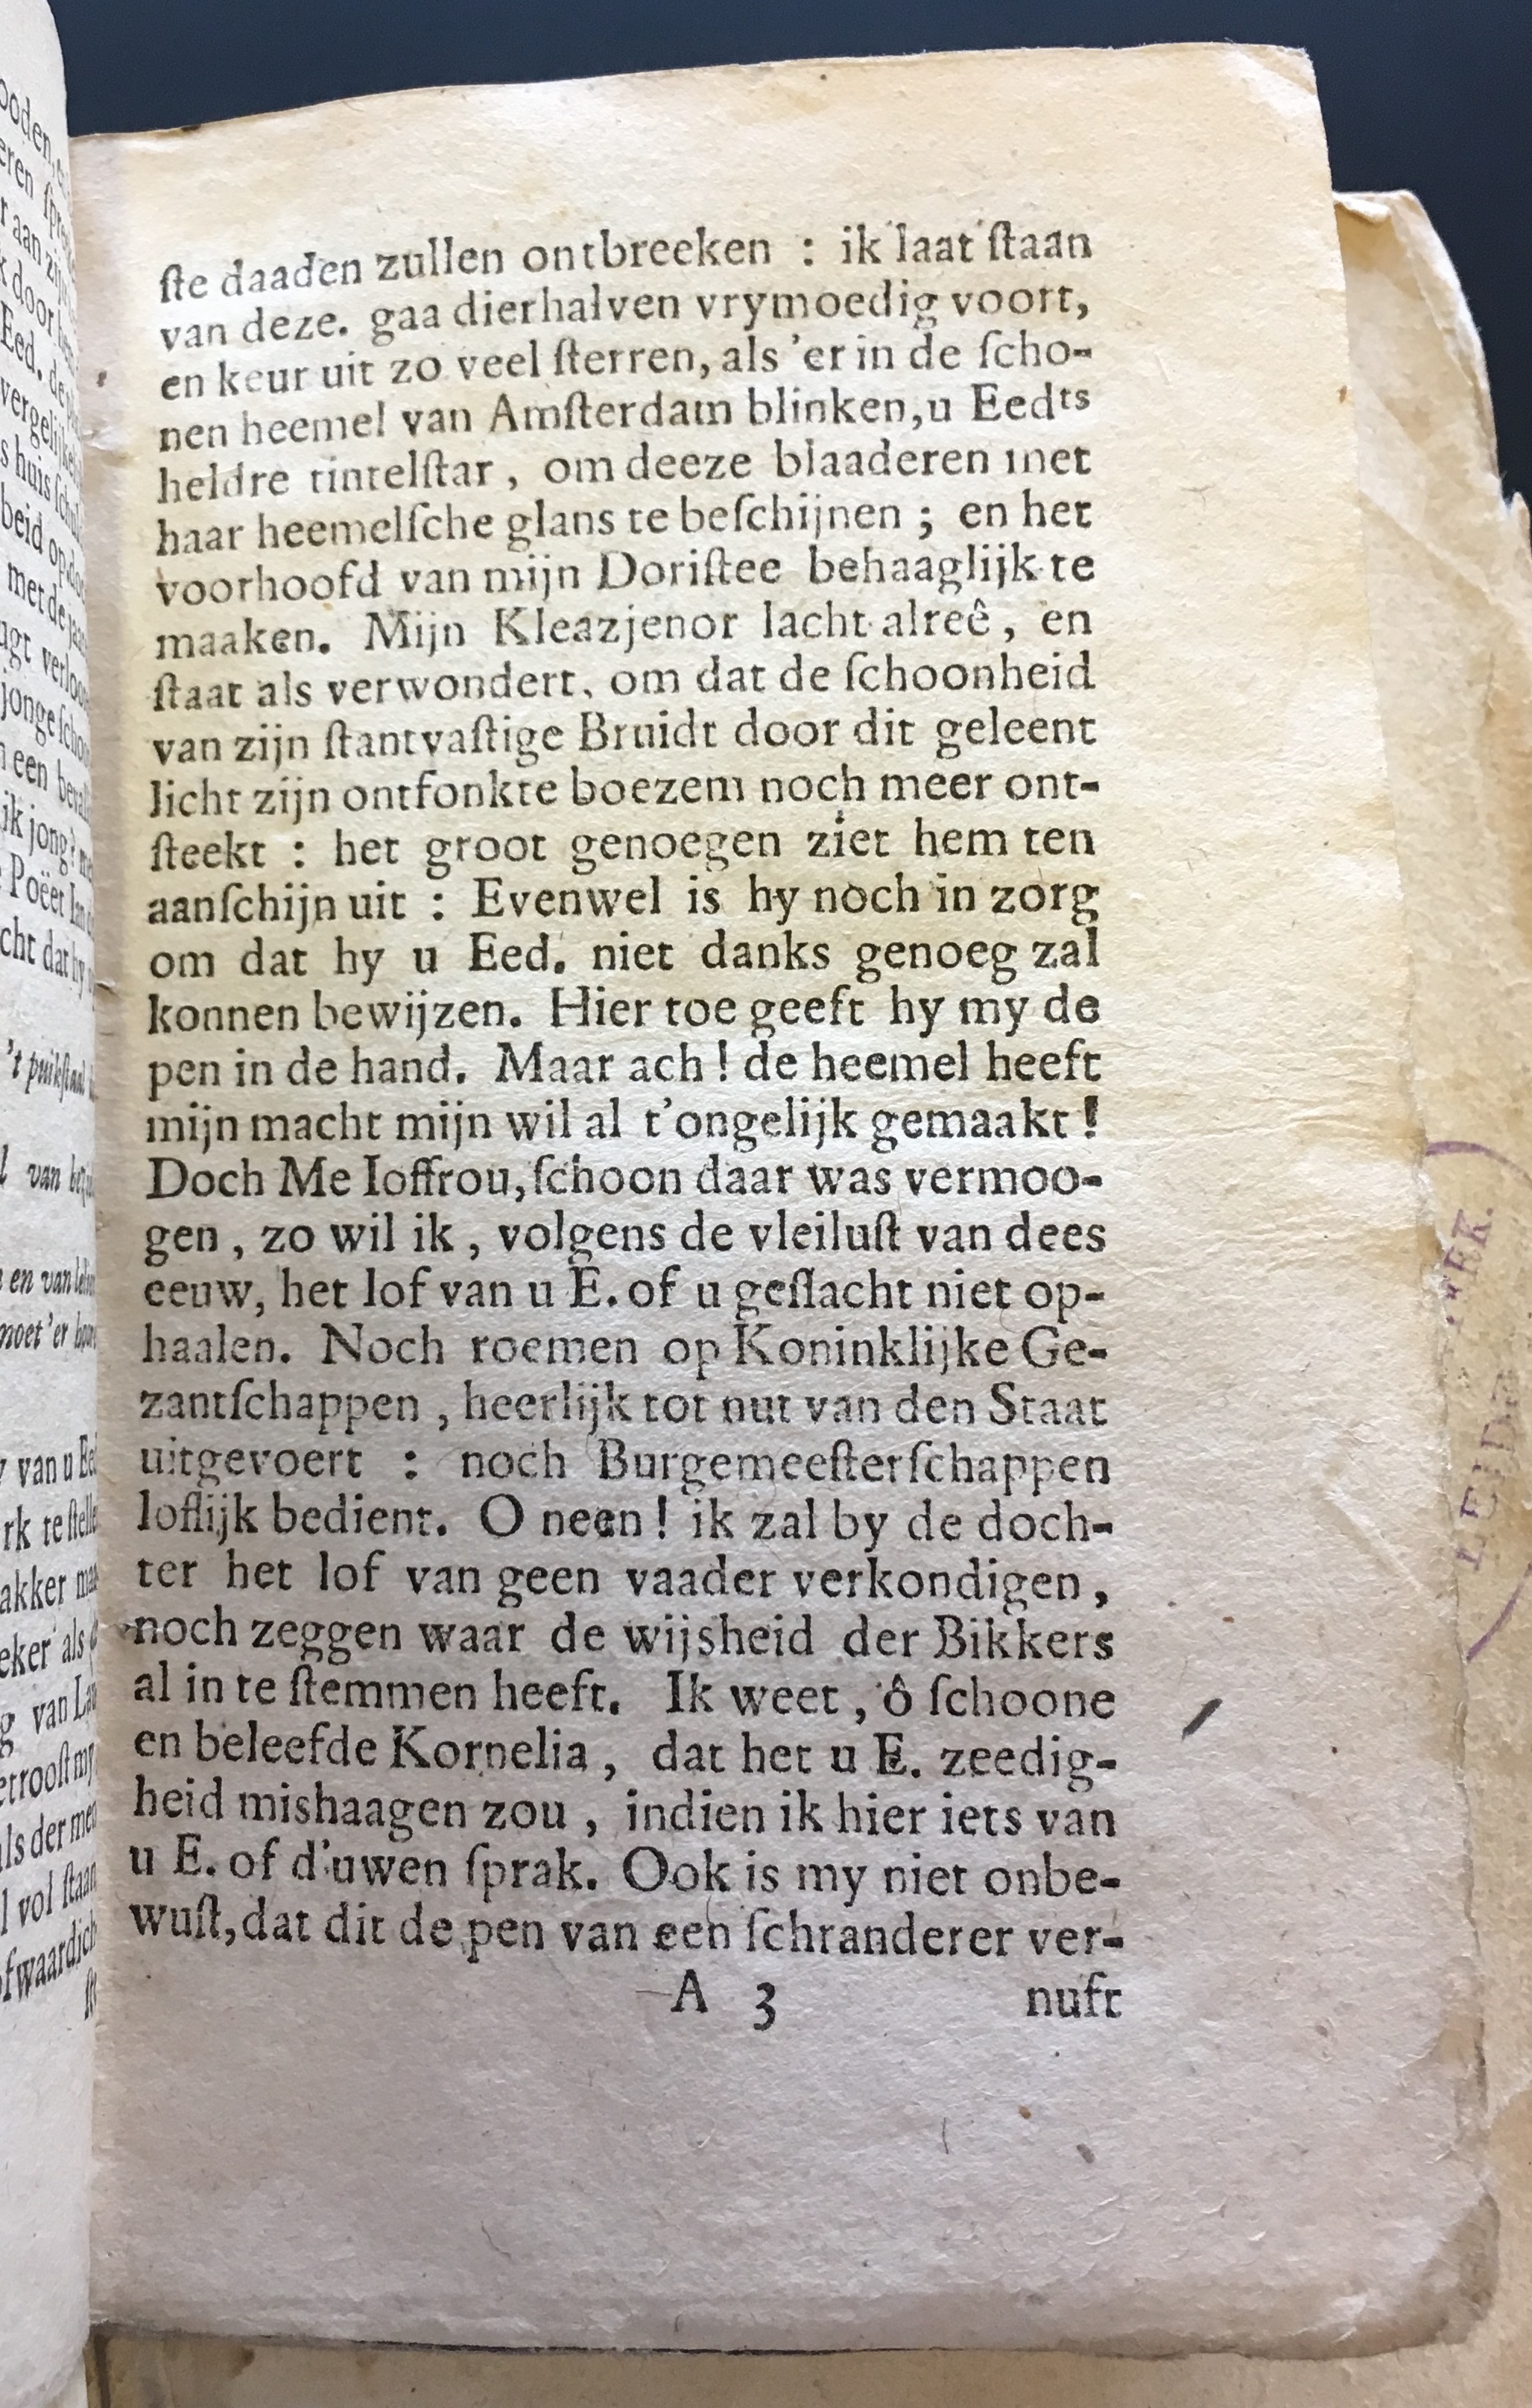 ſte daaden zullen ontbreeken : ik laat ſtaan
van deze. gaa dierhalven vrymoedig voort,
en keur uit zo veel ſterren, als 'er in de ſcho-
nen heemel van Amſterdam blinken, u Eedts
heldre tintelſtar, om deeze blaaderen met
haar heemelſche glans te beſchijnen ; en het
voorhoofd van mijn Doriſtee behaaglijk te
maaken. Mijn Kleazjenor lacht alreê, en
ſtaat als verwondert, om dat de ſchoonheid
van zijn ſtantvaſtige Bruidt door dit geleent
licht zijn ontfonkte boezem noch meer ont-
ſteekt : het groot genoegen ziet hem ten
aanſchijn uit : Evenwel is hy noch in zorg
om dat hy u Eed. niet danks genoeg zal
konnen bewijzen. Hier toe geeft hy my de
pen in de hand. Maar ach ! de heemel heeft
mijn macht mijn wil al t'ongelijk gemaakt !
Doch Me Ioffrou, ſchoon daar was vermoo-
gen, zo wil ik, volgens de vleiluſt van dees
eeuw, het lof van u E. of u geſlacht niet op-
haalen. Noch roemen op Koninklijke Ge-
zantſchappen, heerlijk tot nut van den Staat
uitgevoert : noch Burgemeeſterſchappen
loflijk bedient. O neen ! ik zal by de doch-
ter het lof van geen vaader verkondigen,
noch zeggen waar de wijsheid der Bikkers
al in te ſtemmen heeft. Ik weet, ô ſchoone
en beleefde Kornelia, dat het u E. zeedig-
heid mishaagen zou, indien ik hier iets van
u E. of d'uwen ſprak. Ook is my niet onbe-
wuſt, dat dit de pen van een ſchranderer ver-
A 3 nuft